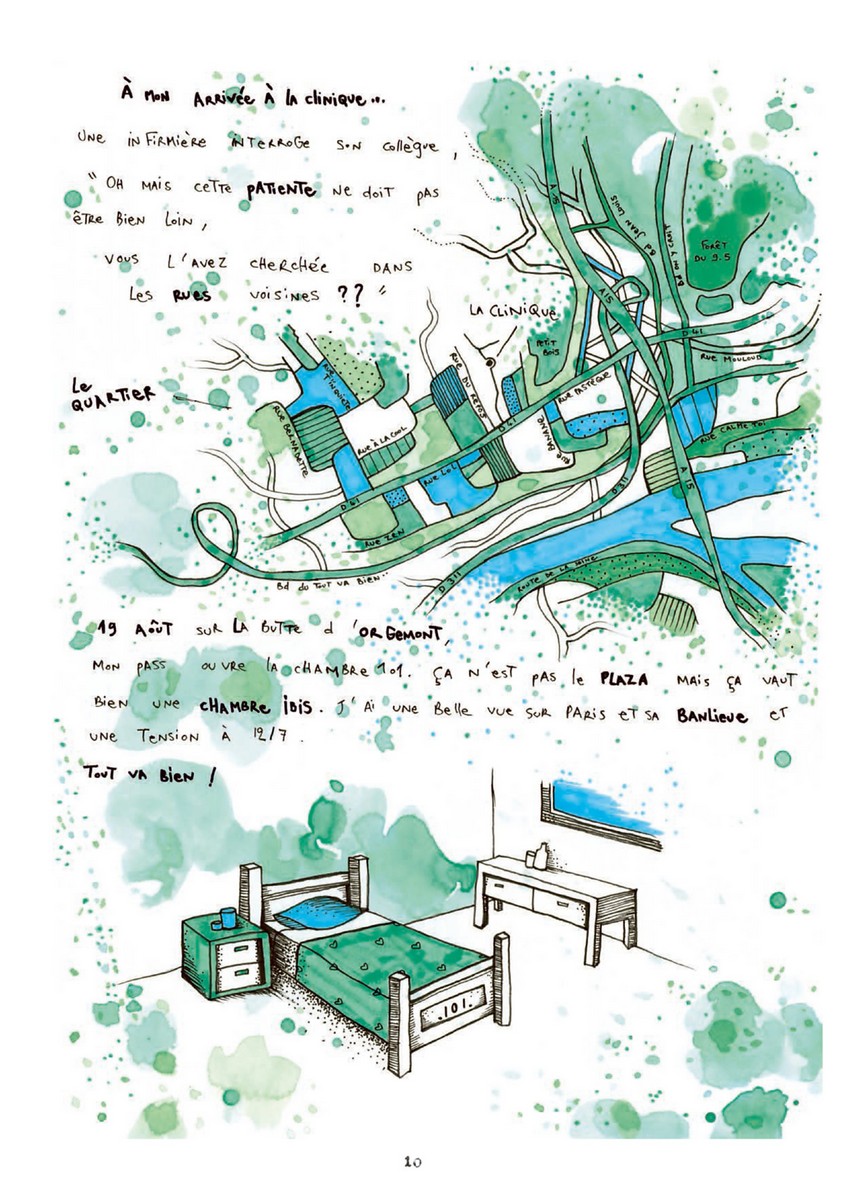 À MON ARRIVÉE À LA CLINIQUE...
UNE INFIRMIÈRE INTERROGE SON COLLÈGUE,
"OH MAIS CETTE PATIENTE NE DOIT PAS
ÊTRE BIEN LOIN,
VOUS L'AVEZ CHERCHÉE DANS
LES RUES VOISINES ??"
LA CLINIQUE
LE
QUARTIER
A 15
Bd JEAN LOUIS
FORÊT
DU 9.5
A15
D 41
RUE MOULOUD
PETIT
BOIS
RUE T'INQUIÈTE
RUE DU REPOS
RUE PASTÈQUE
RUE BERNADETTE
RUE À LA COOL
D 41
RUE BANANE
RUE CALME TOI
RUE LOL
A 15
D 41
D 311
RUE ZEN
Bd du TOUT VA BIEN...
D 311
ROUTE DE LA MINE
19 AOÛT SUR LA BUTTE d'ORGEMONT,
MON PASS OUVRE LA CHAMBRE 101. ÇA N'EST PAS LE PLAZA MAIS ÇA VAUT
BIEN UNE CHAMBRE IBIS. J'AI UNE BELLE VUE SUR PARIS ET SA BANLIEUE ET
UNE TENSION À 12/7.
TOUT VA BIEN !
.101.
10